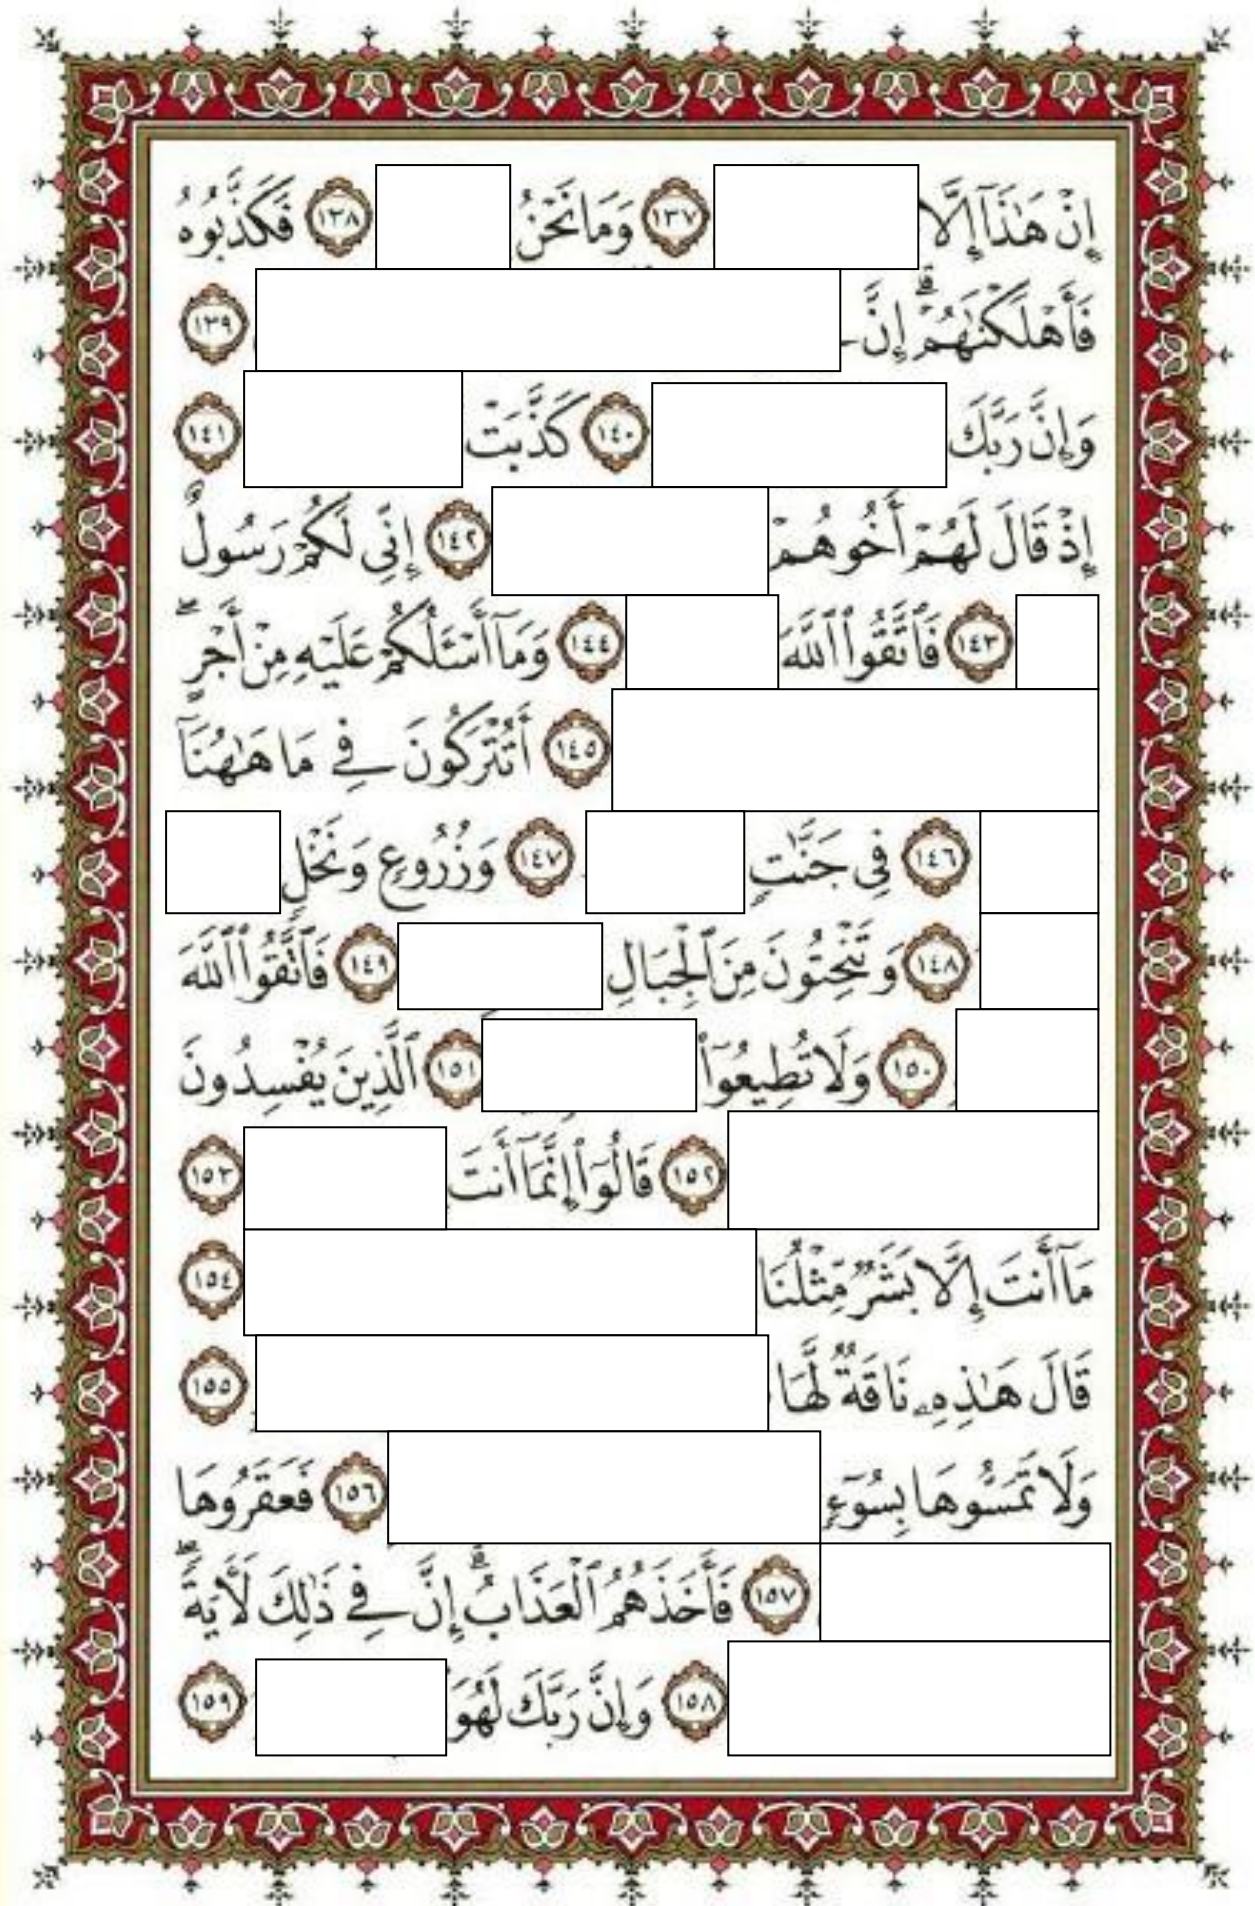 إِنْ هَٰذَآ إِلَّا ١٣٧ وَمَا نَحْنُ ١٣٨ فَكَذَّبُوهُ
فَأَهْلَكْنَٰهُمْ ۗ إِنَّ ١٣٩
وَإِنَّ رَبَّكَ ١٤٠ كَذَّبَتْ ١٤١
إِذْ قَالَ لَهُمْ أَخُوهُمْ ١٤٢ إِنِّى لَكُمْ رَسُولٌ
١٤٣ فَٱتَّقُوا۟ ٱللَّهَ ١٤٤ وَمَآ أَسْـَٔلُكُمْ عَلَيْهِ مِنْ أَجْرٍ ۖ
١٤٥ أَتُتْرَكُونَ فِى مَا هَٰهُنَآ
١٤٦ فِى جَنَّٰتٍ ١٤٧ وَزُرُوعٍ وَنَخْلٍ
١٤٨ وَتَنْحِتُونَ مِنَ ٱلْجِبَالِ ١٤٩ فَٱتَّقُوا۟ ٱللَّهَ
١٥٠ وَلَا تُطِيعُوٓا۟ ١٥١ ٱلَّذِينَ يُفْسِدُونَ
١٥٢ قَالُوٓا۟ إِنَّمَآ أَنتَ ١٥٣
مَآ أَنتَ إِلَّا بَشَرٌ مِّثْلُنَا ١٥٤
قَالَ هَٰذِهِۦ نَاقَةٌ لَّهَا ١٥٥
وَلَا تَمَسُّوهَا بِسُوٓءٍ ١٥٦ فَعَقَرُوهَا
١٥٧ فَأَخَذَهُمُ ٱلْعَذَابُ ۗ إِنَّ فِى ذَٰلِكَ لَءَايَةً ۖ
١٥٨ وَإِنَّ رَبَّكَ لَهُوَ ١٥٩